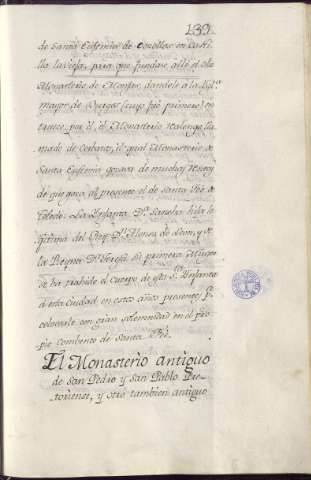 139.
de Santa Eufemia de Cozollos en Casti
lla la vieja, para que fundase alli el dho
Monasterio de Monjas, dandole a la Igl.ª
mayor de Burgos cuyo fue primero en
trueco por él, el Monasterio llama
do de Cerbatos, el qual Monasterio de
Santa Eufemia gozava de muchas rentas
de que goza al presente el de Santa Fée de
Toledo. La Infanta D.ª Sancha hija le
gitima del Rey D.n Alonso de Leon, y de
la Reyna D.ª Teresa su primera Muger
se ha trahido el Cuerpo de esta S.ª Infanta
a esta Ciudad en estos años presentes, y
colocarle con gran solemnidad en el pro
pio Combento de Santa Fée.
El Monasterio antiguo
de San Pedro y San Pablo Pre-
toriense, y otro tambien antiguo